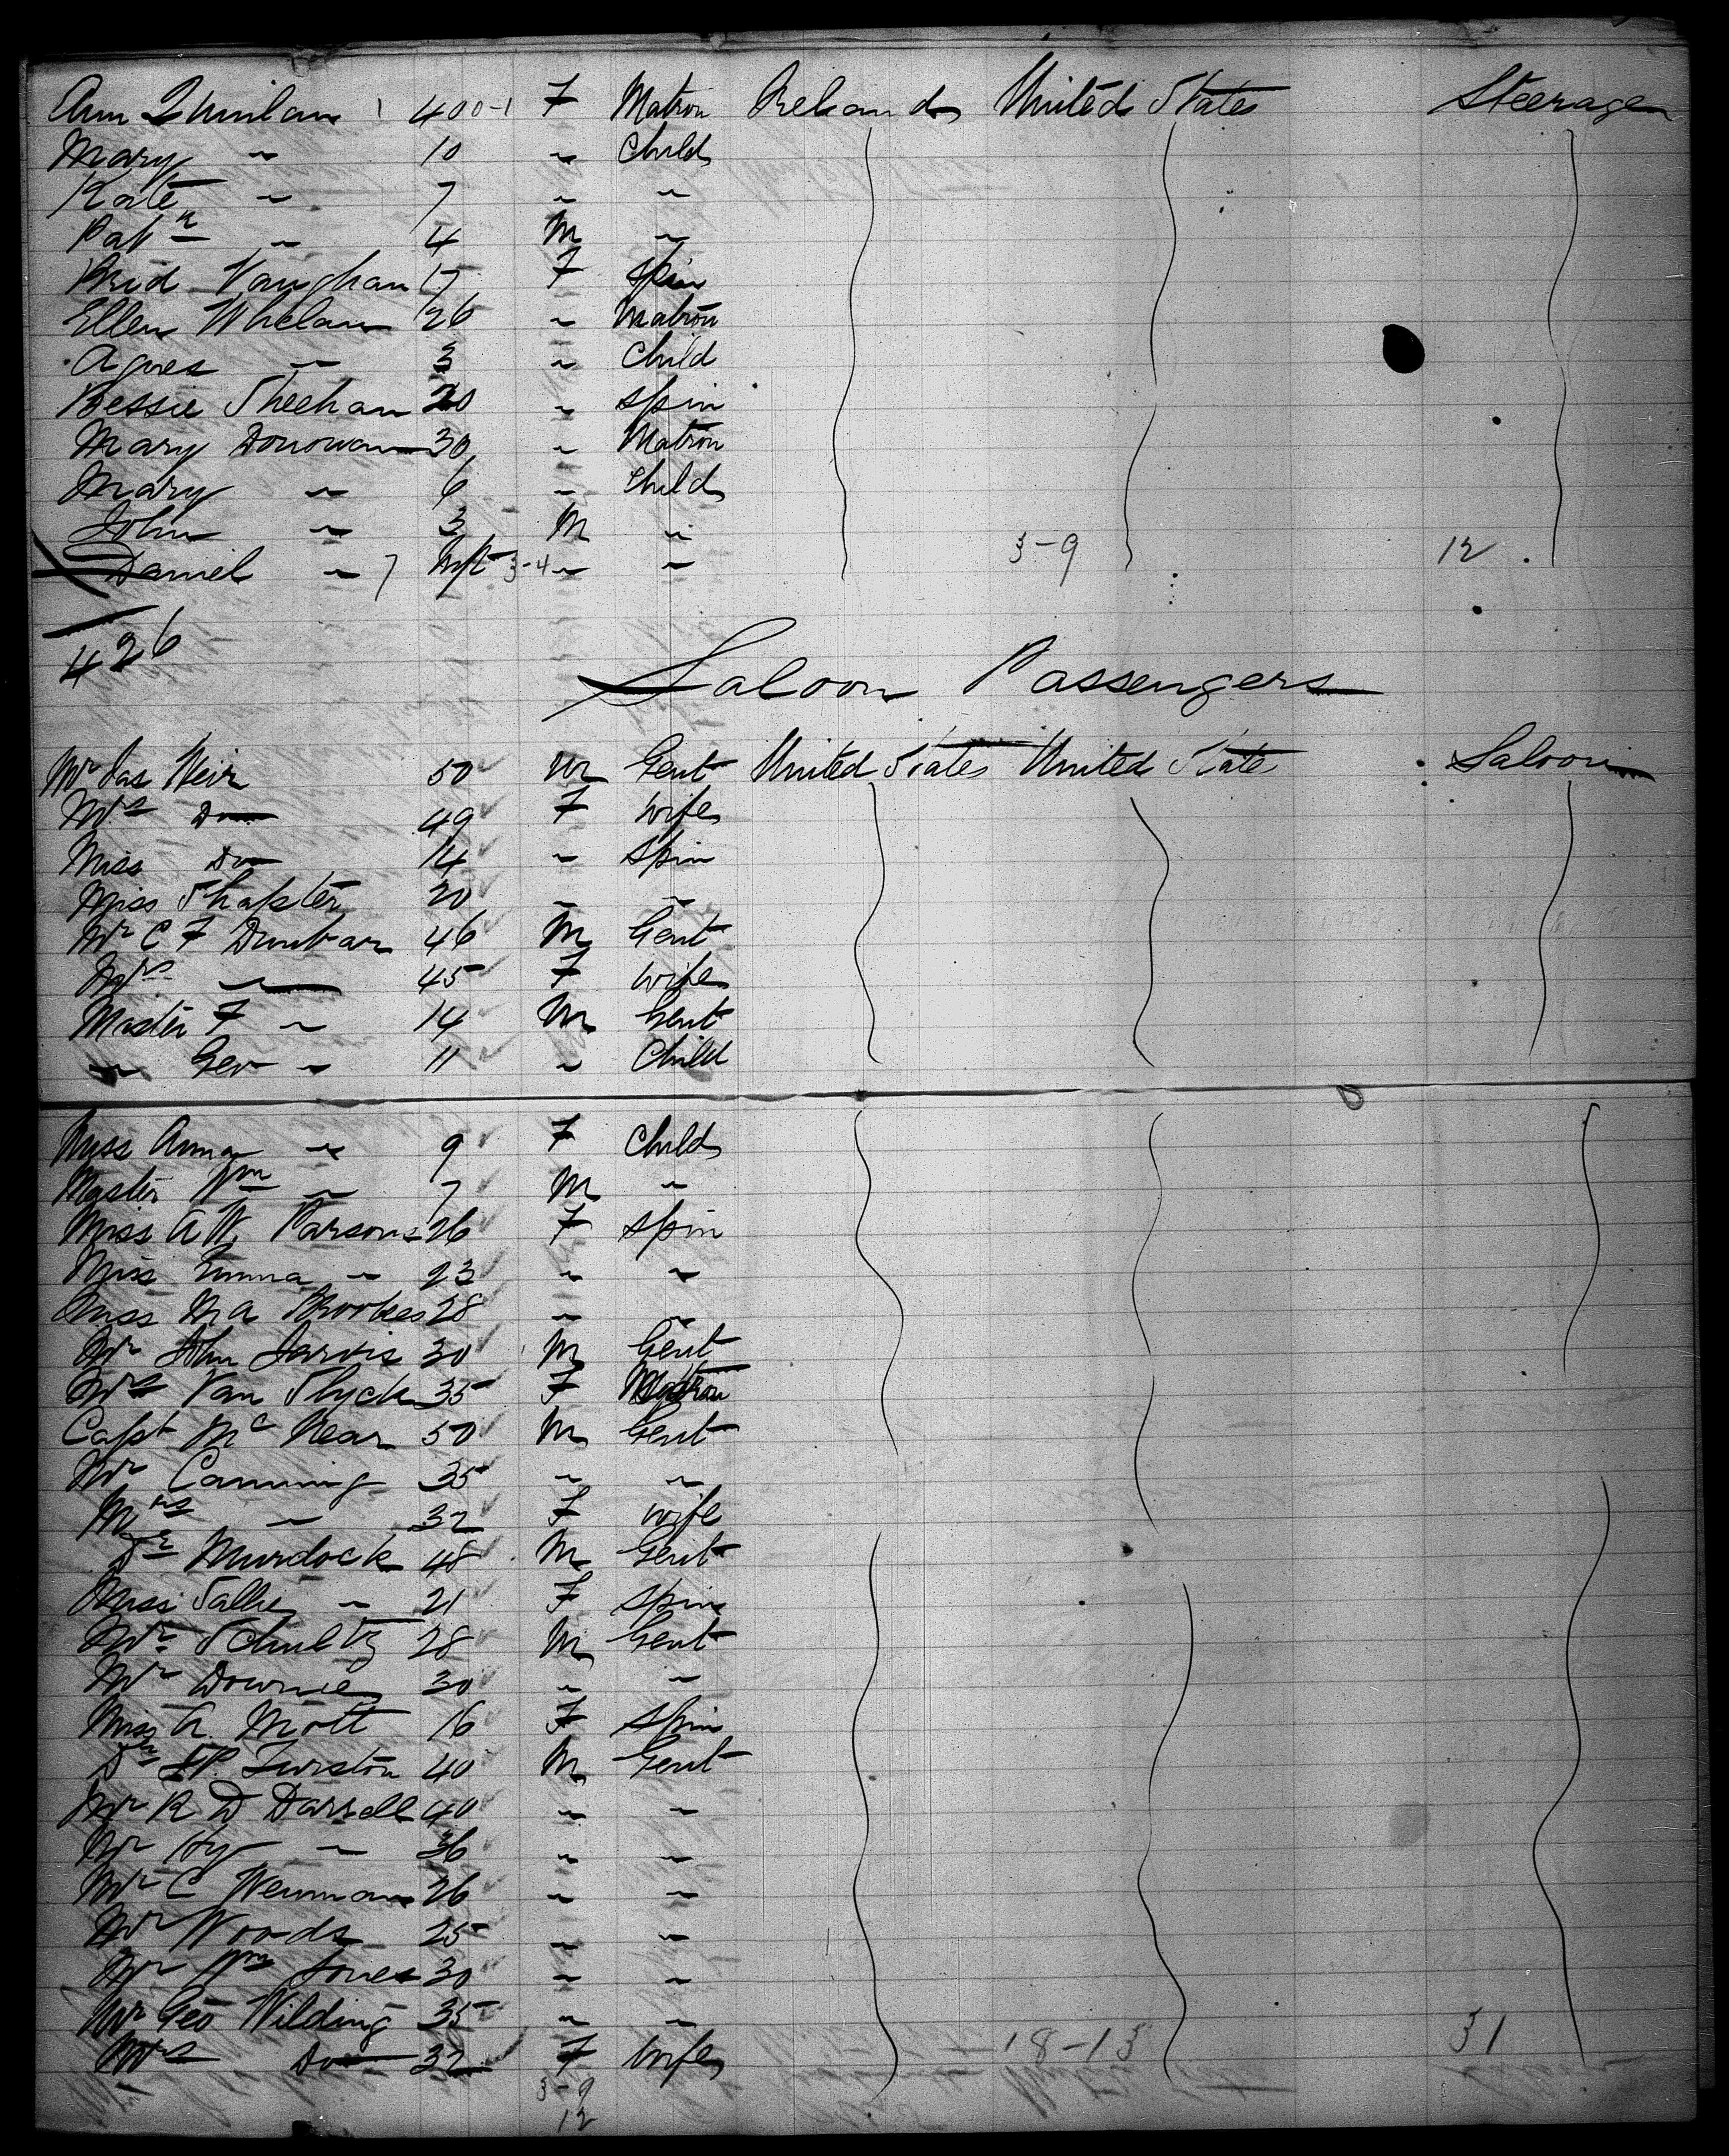 Ann Quinlan 1 40 0-1 F Matron Ireland United States Steerage
Mary " 10 " Child
Kate " 7 " "
Patk " 4 M "
Brid Vaughan 17 F Spin
Ellen Whelan 26 " Matron
Agnes " 3 " Child
Bessie Sheehan 20 " Spin
Mary Donovan 30 " Matron
Mary " 6 " Child
John " 3 M " 3-9 12
Daniel " 7 Inft 3-4 " "
426
Saloon Passengers
Mr Jas Weir 50 M Gent United States United States Saloon
Mrs Do 49 F Wife
Miss Do 14 " Spin
Miss 20 " "
Mr C F Dunbar 46 M Gent
Mrs " 45 F Wife
Master F " 14 M Gent
" Geo " 11 " Child
Miss Anna " 9 F Child
Master Wm " 7 M "
Miss A W Parsons 26 F Spin
Miss Emma " 23 " "
Miss M A Brookes 28 " "
Mr John Jarvis 30 M Gent
Mrs Van Slyck 35 F Matron
Capt Mc Near 50 M Gent
Mr Canning 35 " "
Mrs " 32 F Wife
Dr Murdock 48 M Gent
Miss Sallie " 21 F Spin
Mr Schultz 28 M Gent
Mr Downie 30 " "
Miss A. Mott 16 F Spin
Dr Turston 40 M Gent
Mr R D Darrell 40 " "
Mr Hy " 36 " "
Mr C Newman 26 " "
Mr Woods 25 " "
Mr Wm Jones 30 " "
Mr Geo Wilding 35 " "
Mrs Do 32 F Wife 18-13 31
3-9
12